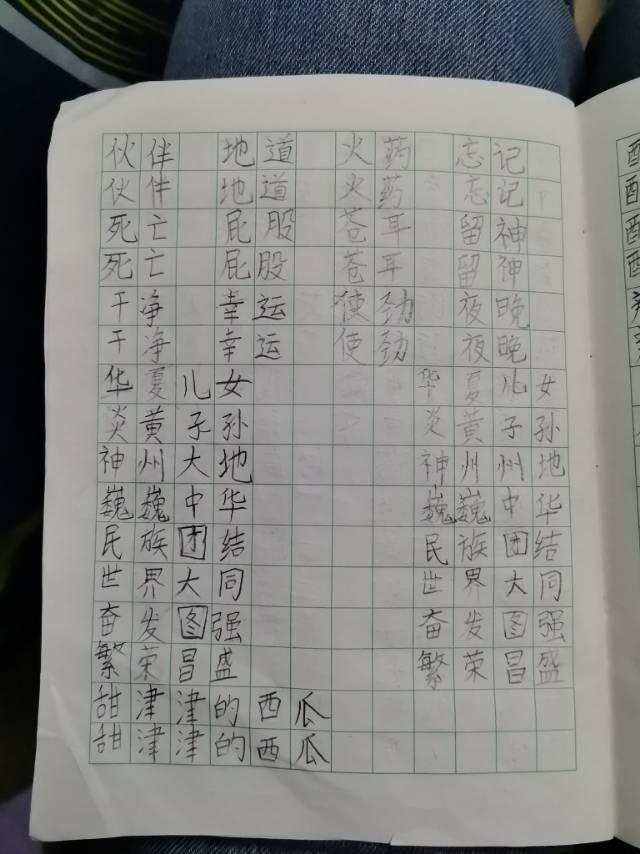 伙伴 地道 火药 忘记
伙伴 地道 火药 忘记
死亡 屁股 苍耳 留神
死亡 屁股 苍耳 留神
干净 幸运 使劲 夜晚
干净 幸运 使劲 夜晚
华夏儿女 华夏儿女
炎黄子孙 炎黄子孙
神州大地 神州州地
巍巍中华 巍巍中华
民族团结 民族团结
世界大同 世界大同
奋发图强 奋发图强
繁荣昌盛 繁荣昌盛
甜津津的西瓜
甜津津的西瓜